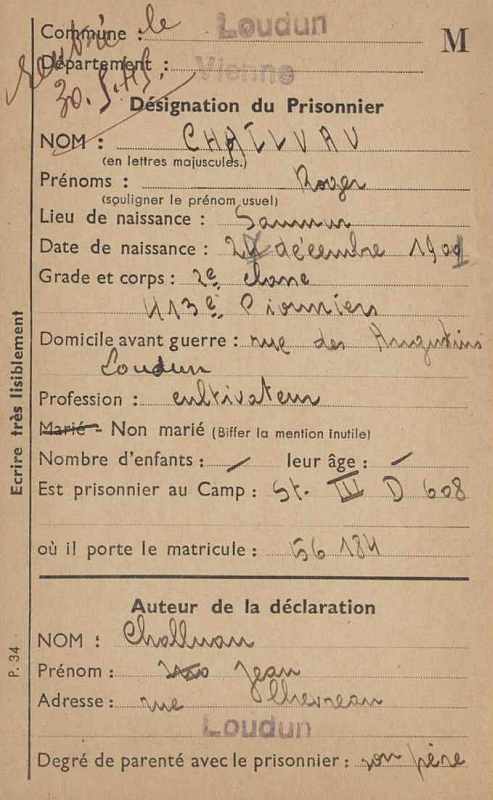 Rapatrié le
30.5.45.
Commune : Loudun
M
Département : Vienne
Désignation du Prisonnier
NOM : CHAILVAU
(en lettres majuscules.)
Prénoms : Roger
(souligner le prénom usuel)
Lieu de naissance : Saumur
Date de naissance : décembre 1901
Grade et corps : 2e classe
413e Pionniers
Domicile avant guerre : rue des Augustins
Loudun
Profession : cultivateur
Marié - Non marié (Biffer la mention inutile)
Nombre d'enfants : / leur âge : /
Est prisonnier au Camp : St. III D 608
où il porte le matricule : 56 184
Auteur de la déclaration
NOM :
Prénom : Jean
Adresse : rue
Loudun
Degré de parenté avec le prisonnier : son père
Ecrire très lisiblement
P. 34